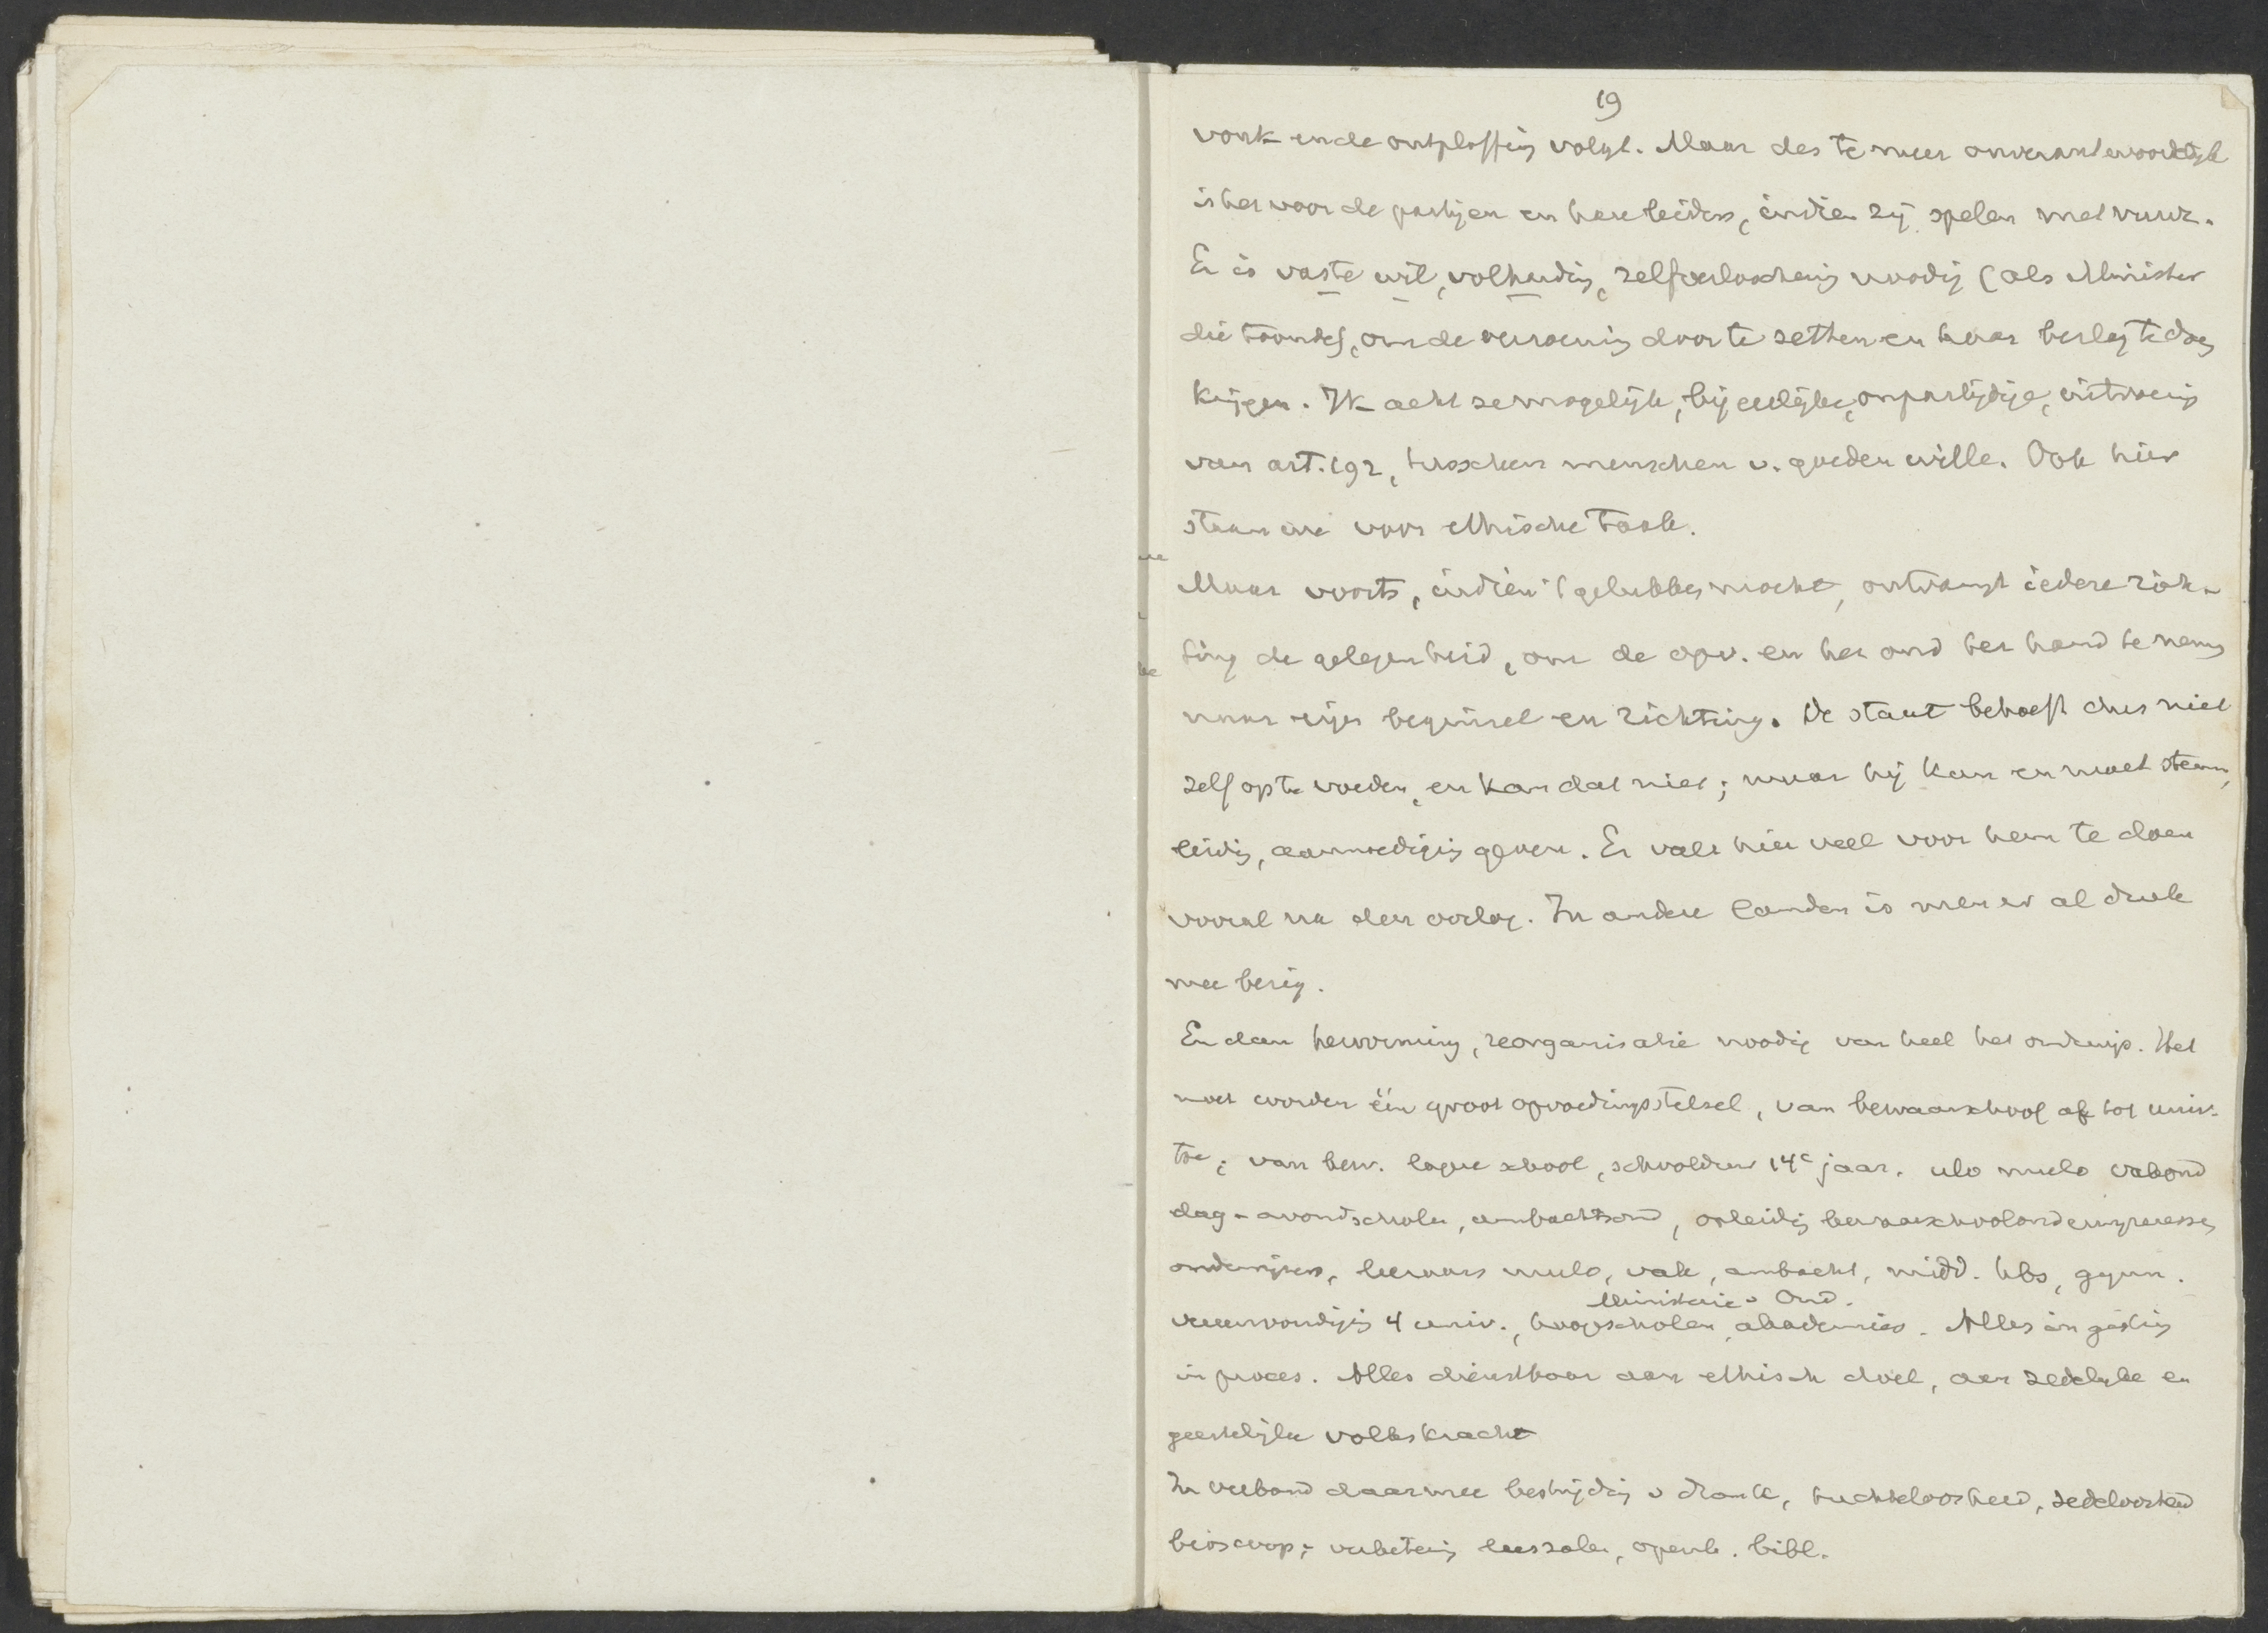 19
vonk en de ontploffing volgt. Maar des te meer onverantwoordelijk
is het voor de partijen en hare leiders, indien zij spelen met vuur.
Er is vaste wil, volharding, zelfverloochening noodig (als Minister
die toonde), om de verzoening door te zetten en haar beslag te doen
krijgen. Ik acht ze mogelijk, bij eerlijke, onpartijdige, uitvoering
van art. 192, tusschen menschen v. goeden wille. Ook hier
staan we voor ethische taak.
Maar voorts, indien 't gelukken mocht, ontvangt iedere rich-
ting de gelegenheid, om de opv. en het ond ter hand te nemen
naar eigen beginsel en richting. De staat behoeft dus niet
zelf op te voeden, en kan dat niet; maar hij kan en moet steun,
leiding, aanmoediging geven. Er valt hier veel voor hem te doen
vooral na den oorlog. In andere landen is men er al druk
mee bezig.
En dan hervorming, reorganisatie noodig van heel het onderwijs. Het
moet worden één groot opvoedingsstelsel, van bewaarschool af tot univ.
toe; van bew. lagere school, schoolduur 14e jaar, ulo mulo vakond
dag-avondscholen, ambachtsond, opleiding bewaarschoolonderwijzeressen
onderwijzers, leeraars mulo, vak, ambacht, midd. hbs, gymn.
Ministerie v Ond.
vereenvoudiging 4 univ., hoogescholen, akademies. Alles in gisting
in proces. Alles dienstbaar aan ethisch doel, aan zedelijke en
geestelijke volkskracht
In verband daarmee bestrijding v drank, tuchteloosheid, zedeloosheid
bioscoop; verbetering leeszalen, openb. bibl.